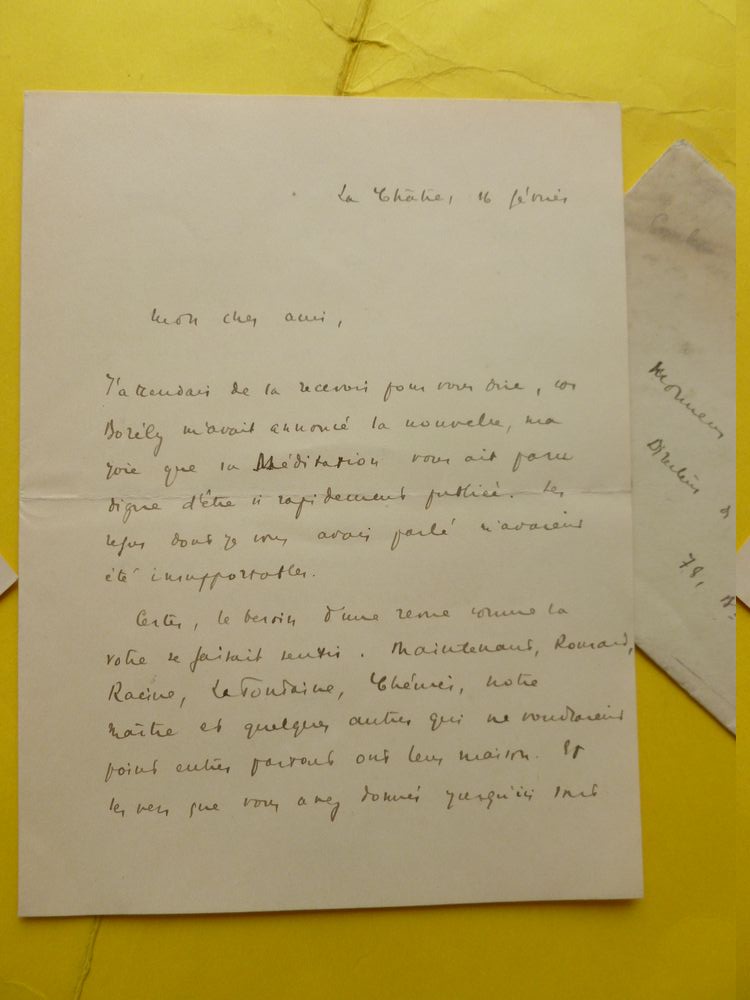 La Châtre, 16 février
Mon cher ami,
J'attendais de la recevoir pour vous dire, car
Borély m'avait annoncé la nouvelle, ma
joie que la Méditation vous ait paru
digne d'être si rapidement publiée. Les
refus dont je vous avais parlé m'avaient
été insupportables.
Certes, le besoin d'une revue comme la
votre se faisait sentir. Maintenant, Ronsard,
Racine, La Fontaine, Chénier, notre
maître et quelques autres qui ne voudraient
point entrer partout ont leur maison. Et
les vers que vous avez donnés jusqu'ici sont
Monsieur
Directeur
78,